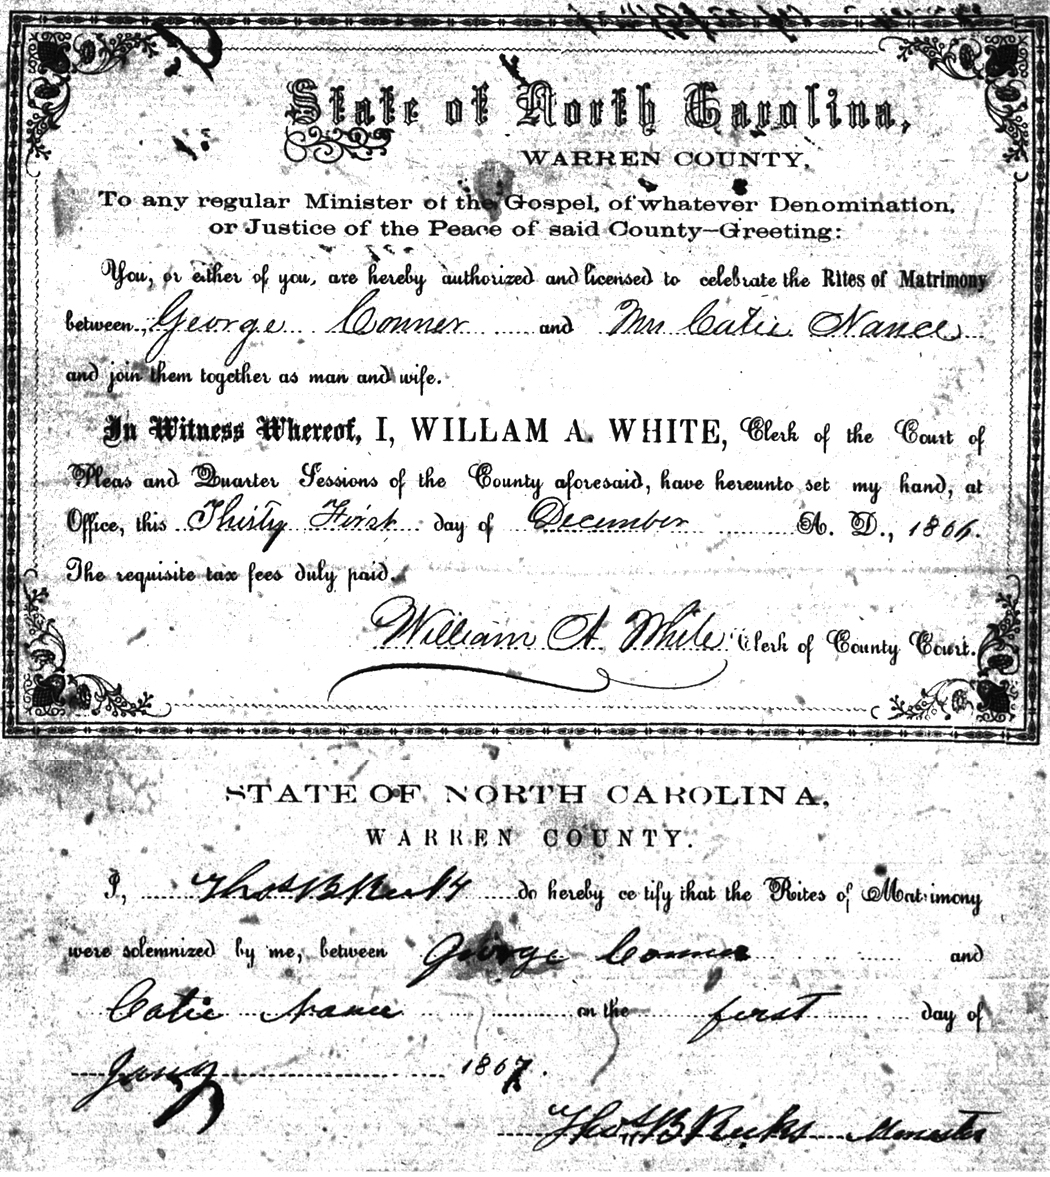 State of North Carolina,
WARREN COUNTY,
To any regular Minister of the Gospel, of whatever Denomination,
or Justice of the Peace of said County—Greeting:
You, or either of you, are hereby authorized and licensed to celebrate the Rites of Matrimony
between George Conner and Mrs Catie Nance
and join them together as man and wife.
In Witness Whereof, I, WILLAM A. WHITE, Clerk of the Court of
Pleas and Quarter Sessions of the County aforesaid, have hereunto set my hand, at
Office, this Thirty First day of December A. D., 1866.
The requisite tax fees duly paid.
William A White Clerk of County Court.
STATE OF NORTH CAROLINA,
WARREN COUNTY.
I, Thos B Reeks do hereby ce tify that the Rites of Matrimony
were solemnized by me, between George Conner and
Catie Nance on the first day of
Jany 1867.
Thos B Reeks Minister